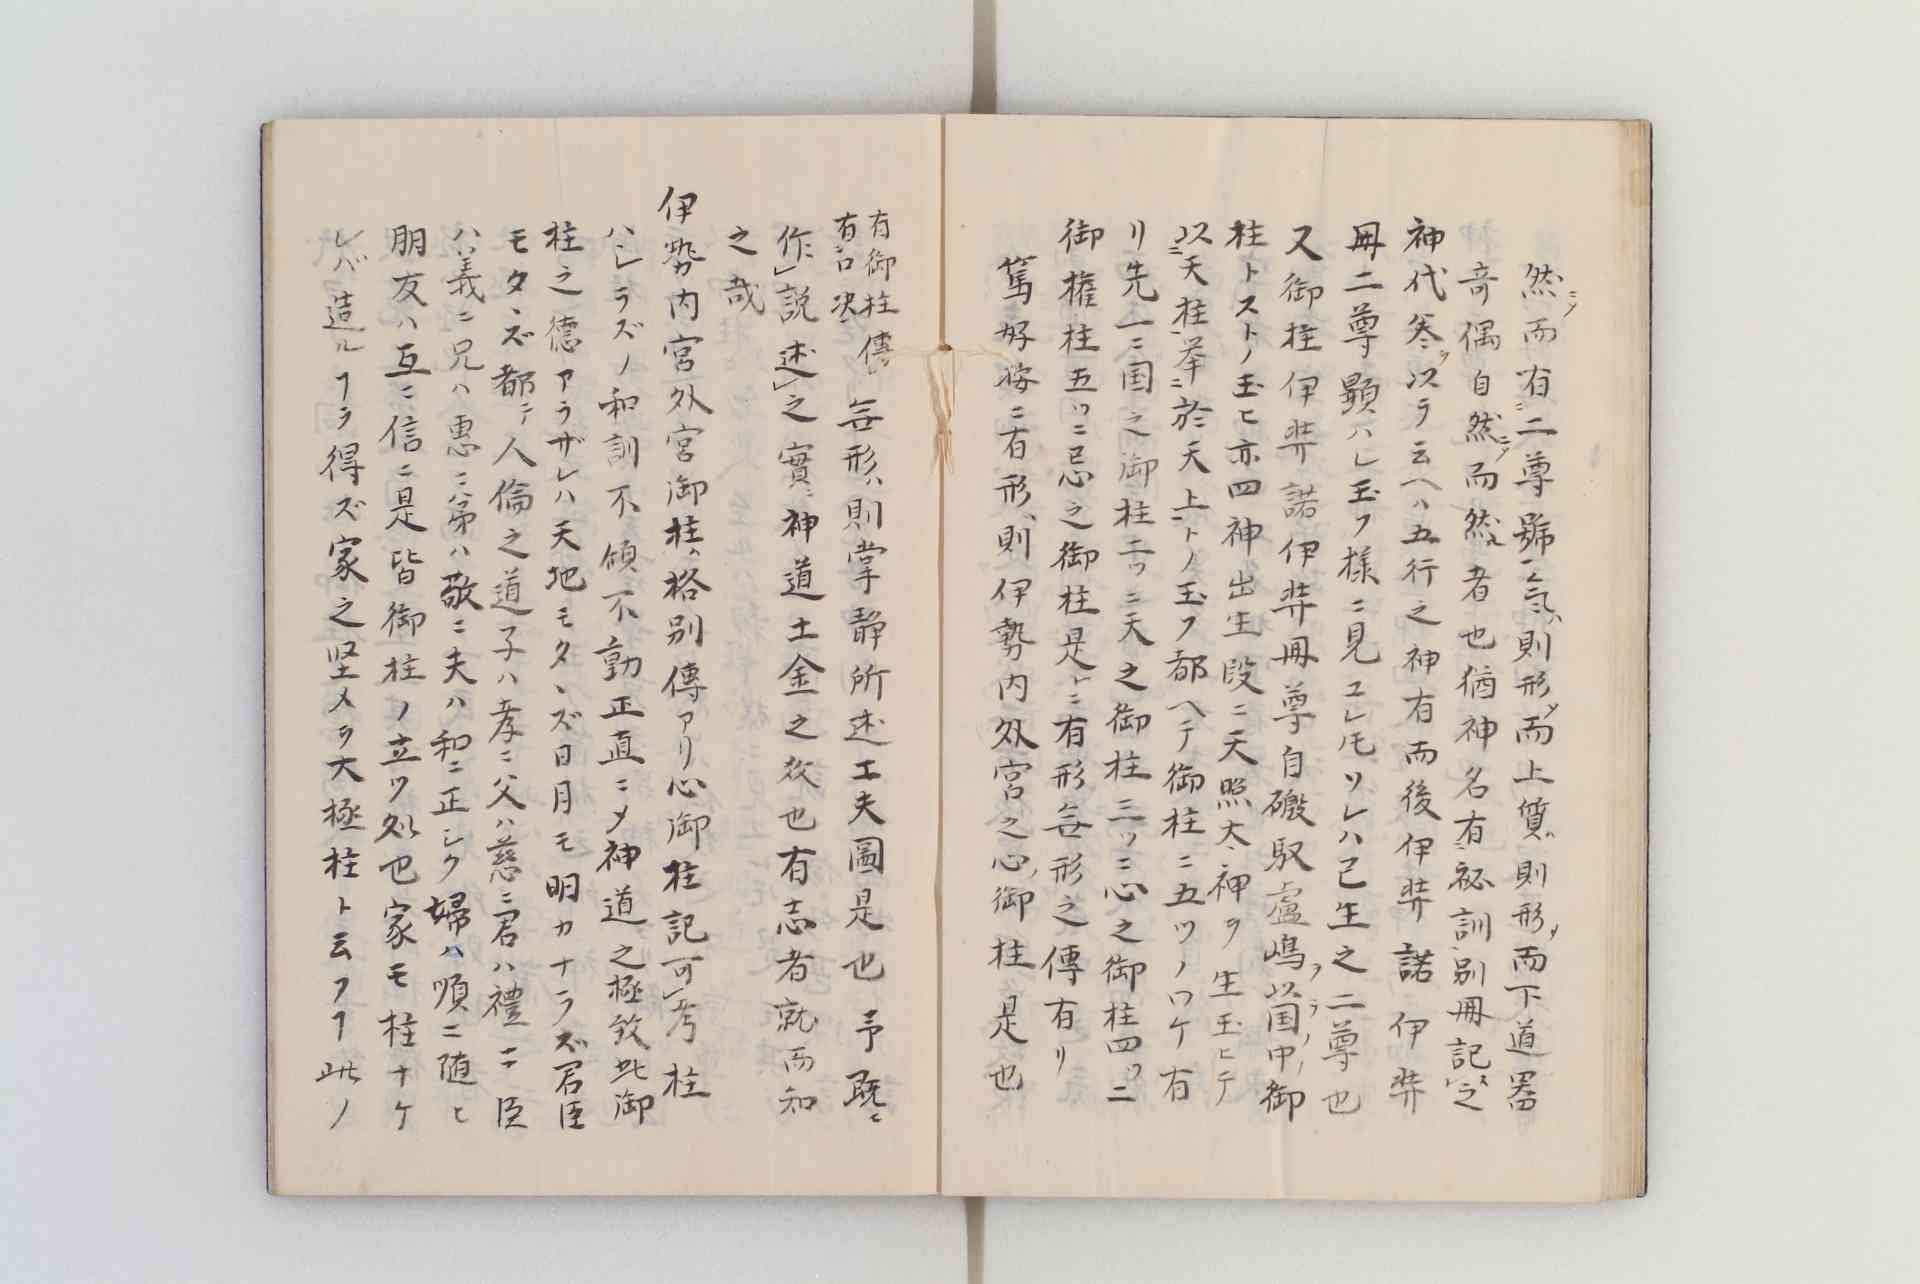 然シテ而有二尊號一氣ハ則形ノ而上質ハ則形ノ而下道器
奇偶自然ニシテ而然ル者也猶神名有秘訓別冊記之
神代巻ヲ以ラ云ヘハ五行之神有而後伊弉諾伊弉
冊二尊顕ハレ玉フ様ニ見ユレ𪜈ソレハ已生之二尊也
又御柱伊弉諾伊弉冊尊自磤馭盧嶋ヲ以ラ国ノ中ノ御
柱トストノ玉ヒ亦四神出生段ニ天照太神ヲ生玉ヒテ
以天柱挙於天上トノ玉フ都ヘテ御柱ニ五ツノワケ有
リ先一ニ国之御柱二ツニ天之御柱三ツニ心之御柱四ツニ
御権柱五ツニ忌之御柱是ニ有形無形之傳有リ
篤好按ニ有形ハ則伊勢内外宮之心ノ御柱是也
有御柱傳
有口决
無形ハ則掌静所述工夫圖是也予既ニ
作説述之實ニ神道土金之教也有志者就而知
之哉
伊勢内宮外宮御柱ハ格別傳アリ心御柱記可考柱
ハシラズノ和訓不傾不動正直ニ〆神道之極致此御
柱之德アラザレハ天地モタヽズ日月モ明カナラズ君臣
モタヽズ都テ人倫之道子ハ孝ニ父ハ慈ニ君ハ禮ニ臣
ハ義ニ兄ハ惠ニ弟ハ敬ニ夫ハ和ニ正シク婦ハ順ニ随ヒ
朋友ハ互ニ信ニ是皆御柱ノ立ツ処也家モ柱ナケ
レバ造ルヿヲ得ズ家之堅メヲ大極柱ト云フヿ此ノ